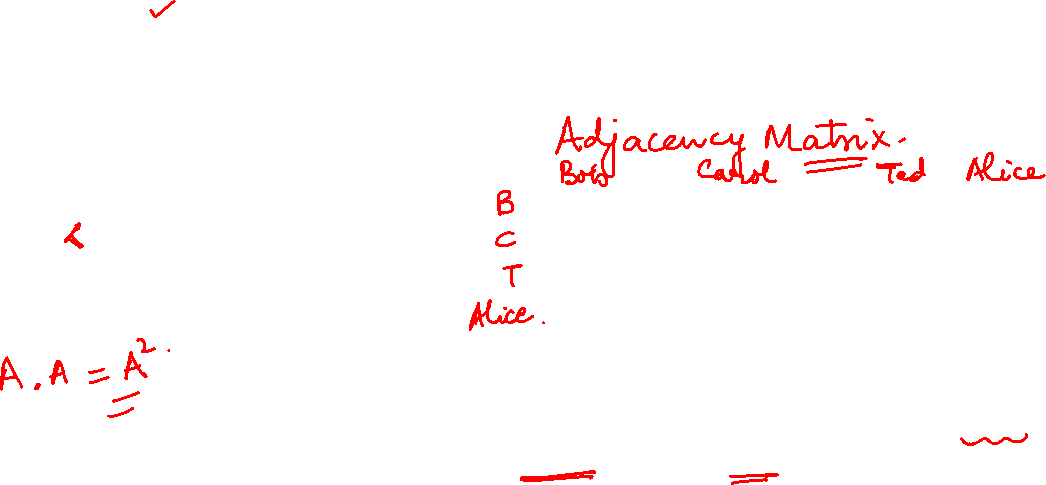 Adjacency Matrix.
Bob Carol Ted Alice
B
C
T
Alice.
A . A = A².